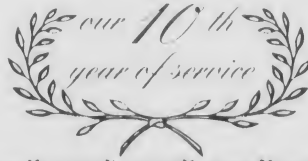 our 10th
year of service